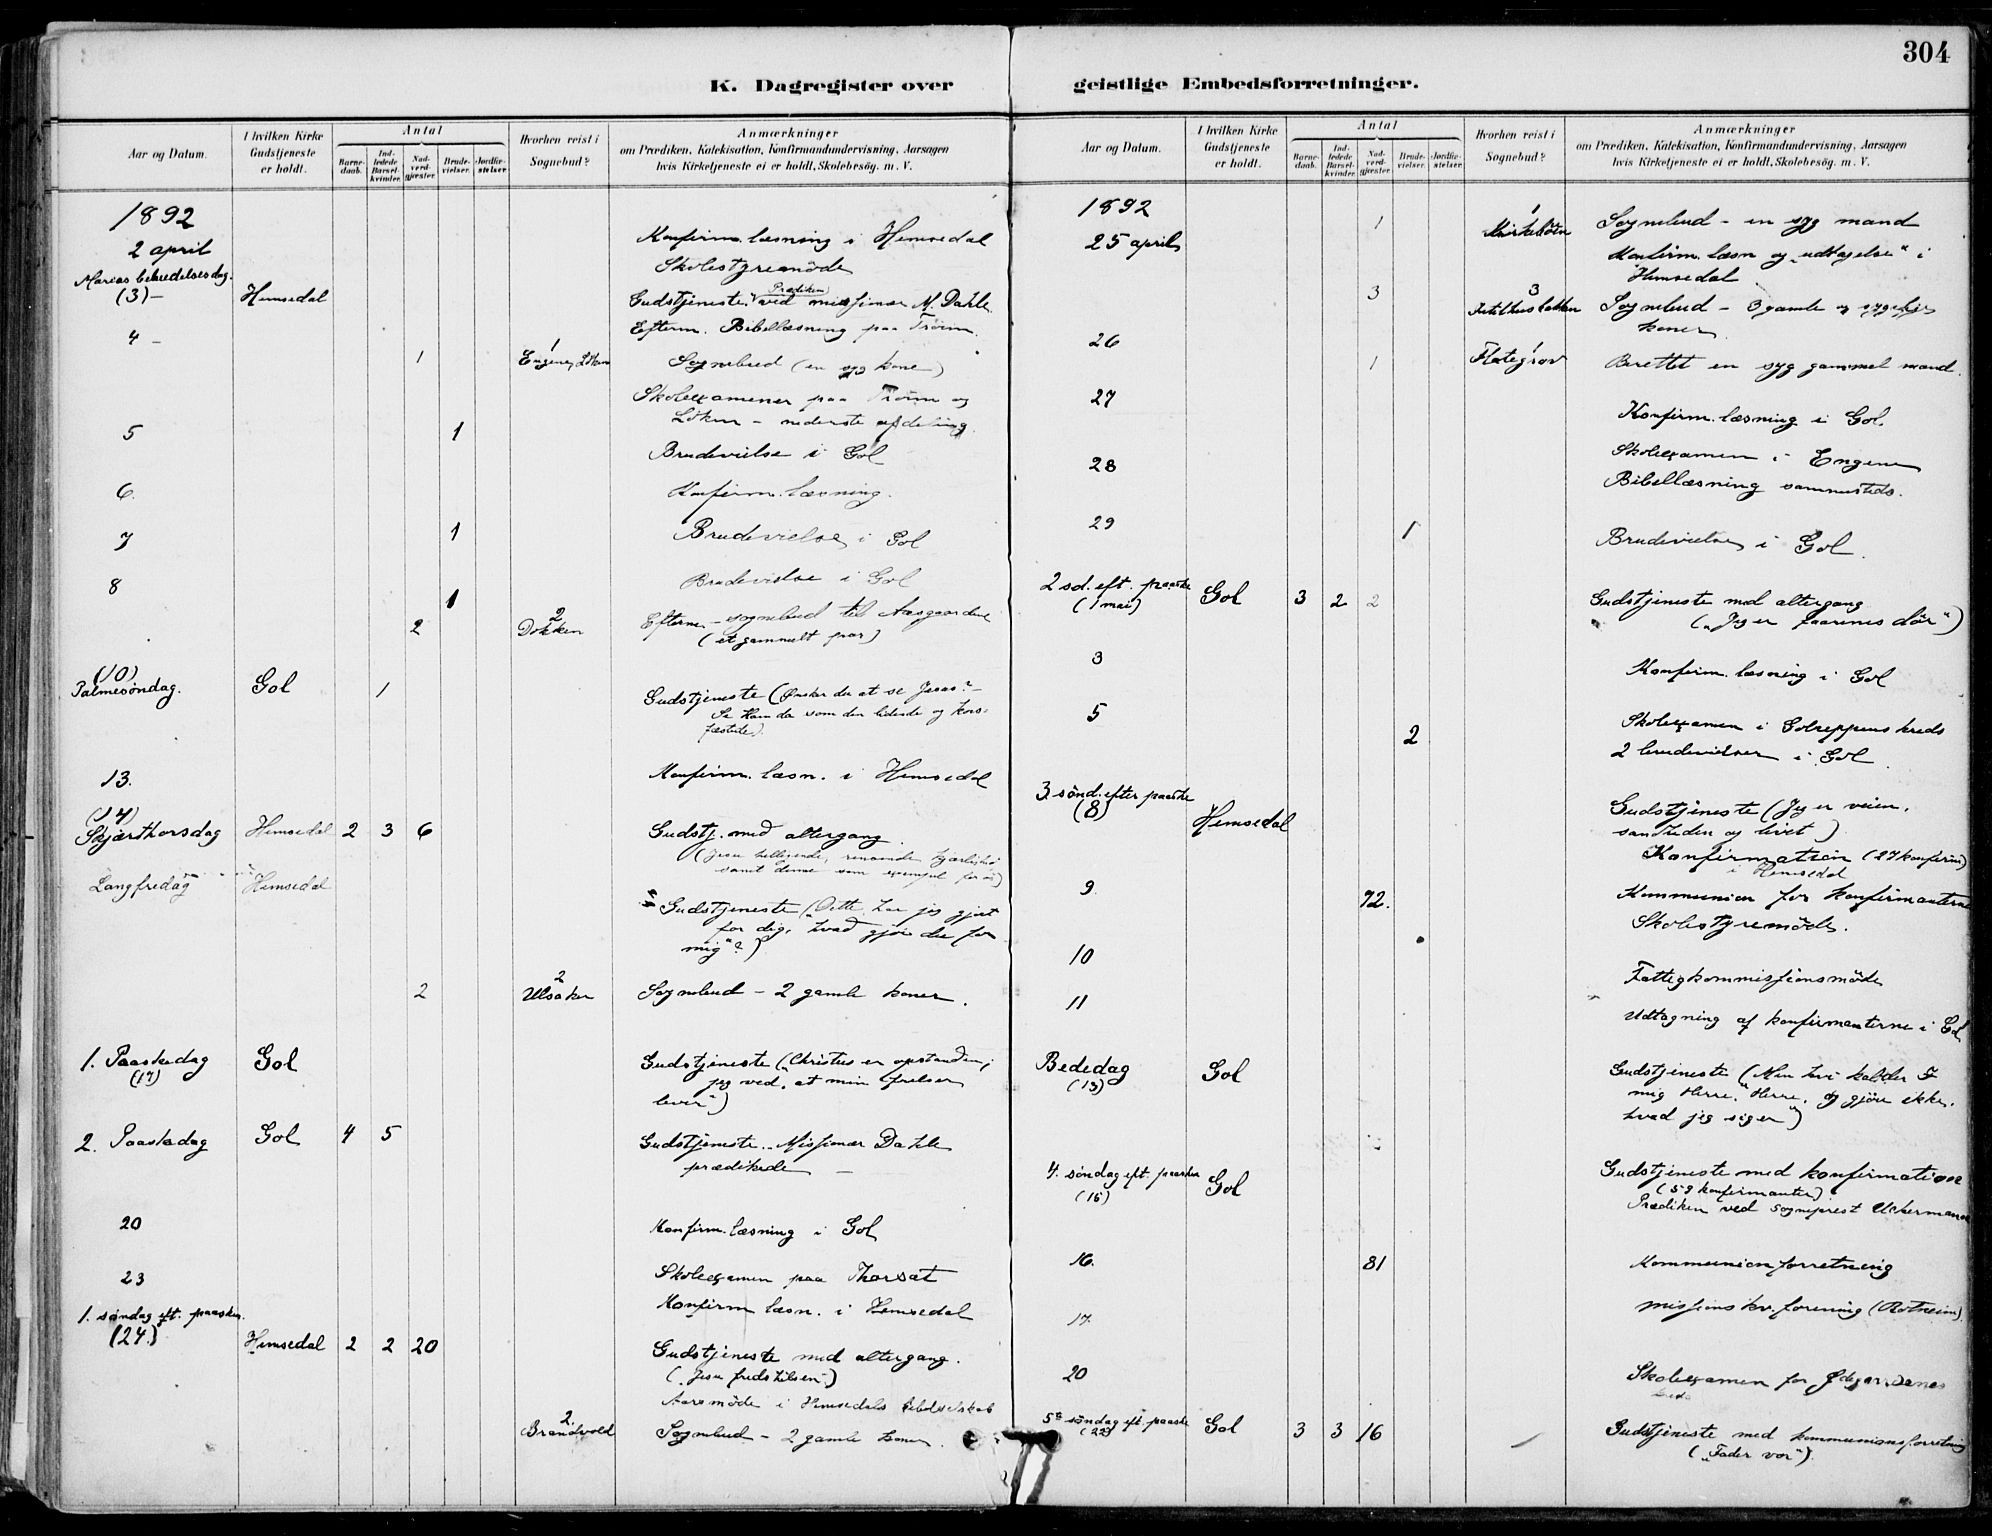 304
K. Dagregister over geistlige Embedsforretninger.
Aar og Datum.
I hvilken Kirke Gudstjeneste er holdt.
Antal
Barnedaab.
Indledede Barselkvinder.
Nadverdgjæster.
Brudevielser.
Jordfæstelser.
Hvorhen reist i Sognebud?
Anmærkninger
om Prædiken, Katekisation, Konfirmandundervisning, Aarsagen
hvis Kirketjeneste ei er holdt, Skolebesøg. m. V.
1892
2 april
Konfirm. læsning i Hemsedal
Skolestyremöde
Marias bebudelsesdag.
(3) – Hemsedal
Gudstjeneste. Prædiken ved missionær M. Dahle.
Efterm. Bibellæsning paa Tröim.
4 –
1 Engene, Löken 1 Sognebud (en syg kone)
Skoleexamener paa Tröim og
Löken – nederste afdeling.
5 1
Brudevielse i Gol
6. Konfirm. læsning.
7 1 Brudevielse i Gol
8 1 Brudevielse i Gol
2 Dokken 2 Efterm. – sognebud til Aasgaardene
(et gammelt par)
(10)
Palmesöndag. Gol 1 Gudstjeneste (Önsker du at se Jesus? –
Se Ham da som den lidende og kors-
fæstede).
13. Konfirm. læsn. i Hemsedal
(14)
Skjærthorsdag Hemsedal 2 3 6 Gudstj. med altergang.
(Jesu helligende, rensende kjærlighed
samt denne som exempel for os)
Langfredag Hemsedal
Gudstjeneste („Dette har jeg gjort
for dig, hvad gjör du for
mig“?)
2 Ulsaker 2 Sognebud – 2 gamle koner.
1. Paaskedag Gol
(17)
Gudstjeneste („Christus er opstanden;
jeg ved, at min frelser
lever“)
2. Paaskedag Gol 4 5 Gudstjeneste. Missionær Dahle
prædikede –
20 Konfirm. læsning i Gol
23 Skoleexamen paa Thorset
Konfirm læsn. i Hemsedal
1. söndag eft. paaske.
(24.) Hemsedal 2 2 20
Gudstjeneste med altergang.
(„Jesu fredshilsen“)
Aarsmöde i Hemsedals bibelselskab
Brandvold 2. Sognebud – 2 gamle koner.
Aar og Datum.
I hvilken Kirke Gudstjeneste er holdt.
Antal
Barnedaab.
Indledede Barselkvinder.
Nadverdgjæster.
Brudevielser.
Jordfæstelser.
Hvorhen reist i Sognebud?
Anmærkninger
om Prædiken, Katekisation, Konfirmandundervisning, Aarsagen
hvis Kirketjeneste ei er holdt, Skolebesøg. m. V.
1892
25 april 1 1 Sognebud – en syg mand
Konfirm. læsn og „udtagelse“ i
Hemsedal
3 3 Sognebud – 3 gamle og sygelige
koner
26 1 Flategrav 1 Berettet en syg gammel mand.
27 Konfirm. læsning i Gol
28 Skoleexamen i Engene
Bibellæsning sammesteds.
29 1 Brudevielse i Gol.
2 sd. eft. paaske
(1 mai) Gol 3 2 2 Gudstjeneste med altergang
(„Jeg er faarenes dör“)
3 Konfirm. læsning i Gol
5 2 Skoleexamen i Golreppens kreds
2 brudevielser i Gol.
3. sönd. efter paaske
(8) Hemsedal Gudstjeneste (Jeg er veien,
sandheden og livet)
Konfirmation (27 konfirm)
i Hemsedal
9 72. Kommunion for konfirmanterne
Skolestyremöde.
10 Fattigkommissionsmöde
11 Udtagning af konfirmanterne i Gol
Bededag Gol
(13)
Gudstjeneste („Men hvi kalder I
mig Herre, Herre, og gjöre ikke,
hvad jeg siger“)
4. söndag eft. paaske Gol
(15)
Gudstjeneste med konfirmation
(59 konfirmanter)
Prædiken ved sogneprest Uckermann
16. 81 Kommunionforretning
17. Missions kv. forening (Rotneim).
20 Skoleexamen for
5te söndag eft. paaske Gol 3 3 16
(22)
Gudstjeneste med kommunionsforretning
(„Fader vor“).